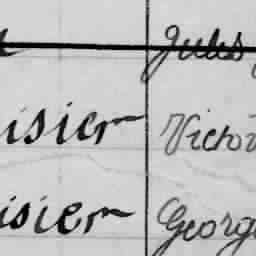 Jules
isier Victor
isier George